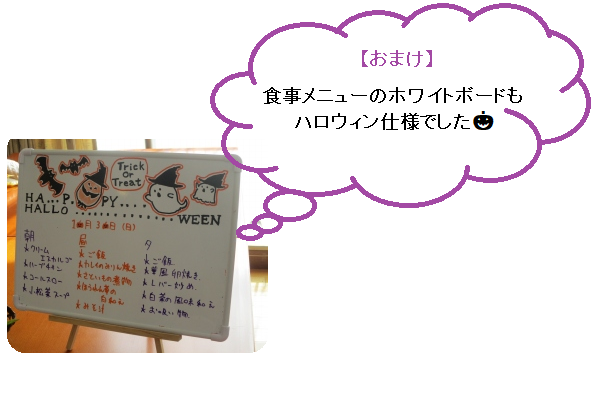 【おまけ】
食事メニューのホワイトボードも
ハロウィン仕様でした🎃
Trick
or
Treat
HA...P...PY....
HALLO..............WEEN
月3 日(日)
朝
★クリーム
エスカルゴ
★コールスロー
★小松菜スープ
昼
★ご飯
★さといもの煮物
★ほうれん草の
白和え
★みそ汁
夕
★ご飯
★レバー炒め
★白菜の風味和え